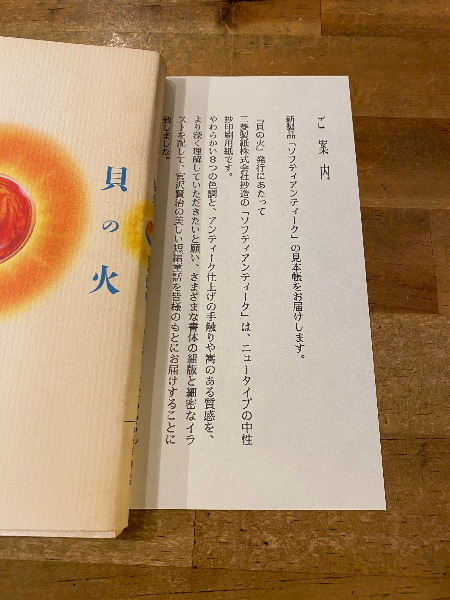 貝の火
ご案内
新製品「ソフティアンティーク」の見本帳をお届けします。
『貝の火』発行にあたって
三菱製紙株式会社抄造の「ソフティアンティーク」は、ニュータイプの中性
抄印刷用紙です。
やわらかい8つの色調と、アンティーク仕上げの手触りや嵩のある質感を、
より深く理解していただきたいと願い、さまざまな書体の組版と細密なイラ
ストを配して、宮沢賢治の美しい短編童話を皆様のもとにお届けすることに
致しました。